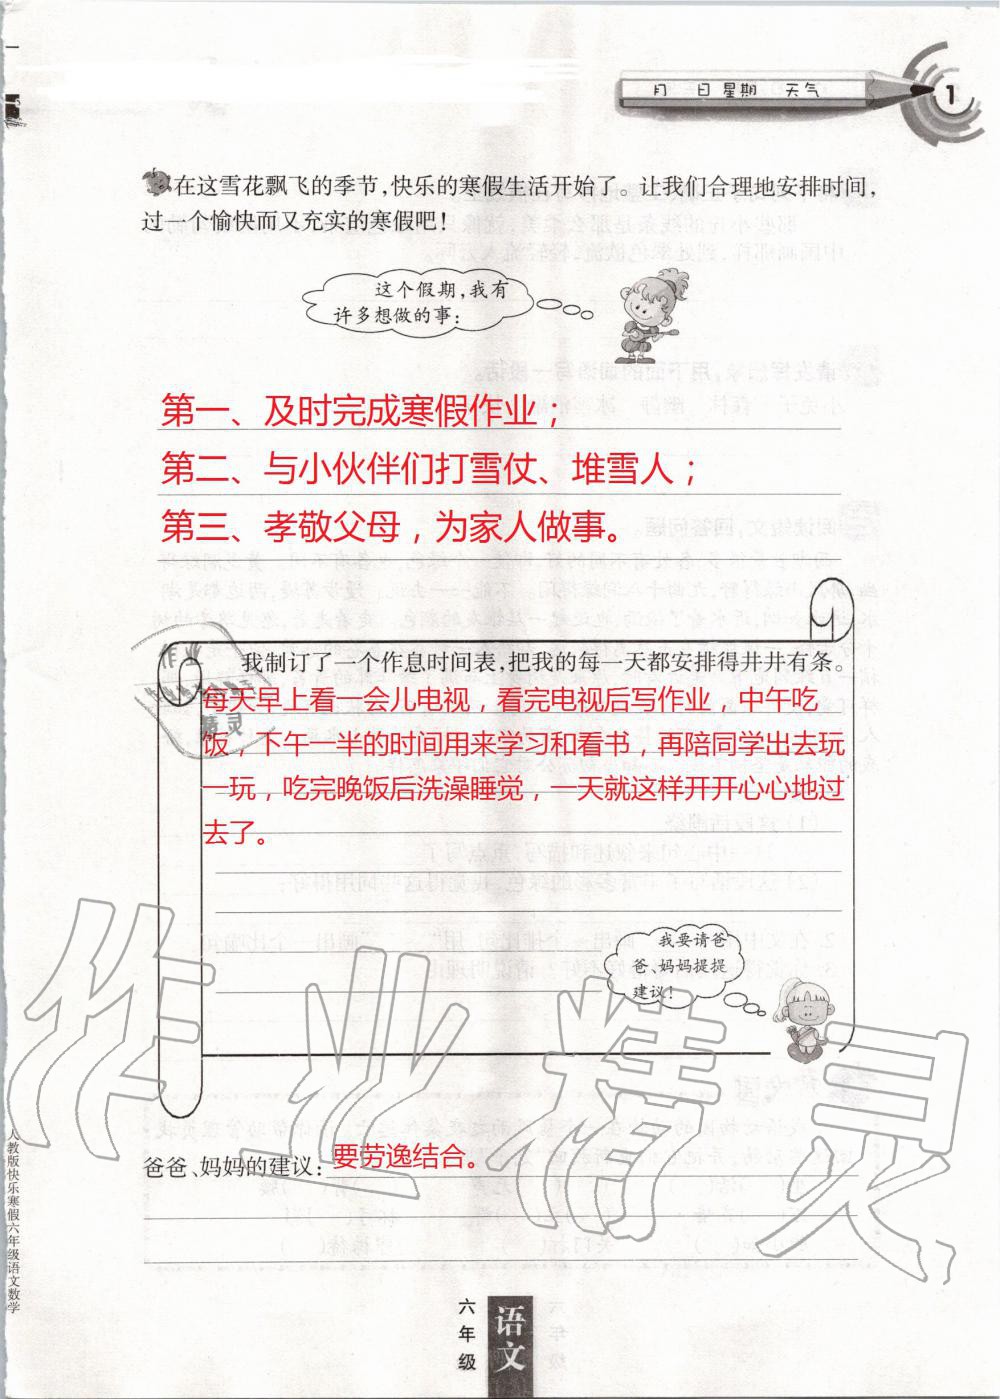 月 日 星期 天气
1
在这雪花飘飞的季节,快乐的寒假生活开始了。让我们合理地安排时间,
过一个愉快而又充实的寒假吧!
这个假期,我有
许多想做的事:
第一、及时完成寒假作业；
第二、与小伙伴们打雪仗、堆雪人；
第三、孝敬父母，为家人做事。
我制订了一个作息时间表,把我的每一天都安排得井井有条。
每天早上看一会儿电视，看完电视后写作业，中午吃
饭，下午一半的时间用来学习和看书，再陪同学出去玩
一玩，吃完晚饭后洗澡睡觉，一天就这样开开心心地过
去了。
我要请爸
爸、妈妈提提
建议!
爸爸、妈妈的建议: 要劳逸结合。
人教版快乐寒假六年级语文数学
六年级
语文
作业精灵
作业
精灵